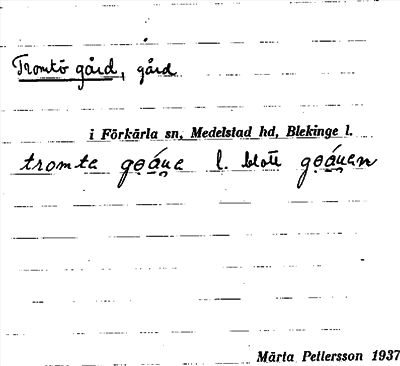 Tromtö gård, gård
i Förkärla sn, Medelstad hd, Blekinge l.
tromta gọáu̯a l. blott gọáu̯an
Märta Pettersson 1937